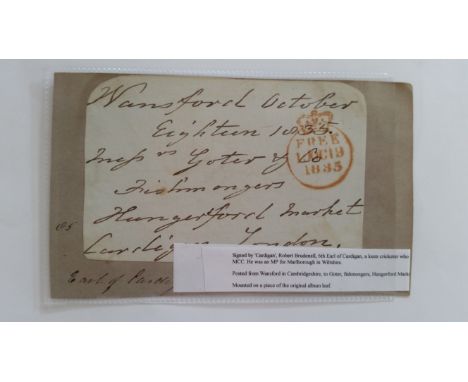 Wansford October
Eighteen 1835.
Messrs Goter & Co
Fishmongers
Hungerford Market
Cardigan London.
FREE
19
1835
Earl of
Signed by 'Cardigan', Robert Brudenell, 6th Earl of Cardigan, a keen cricketer who
MCC. He was an MP for Marlborough in Wiltshire.
Posted from Wansford in Cambridgeshire, to Goter, fishmongers, Hungerford Marke
Mounted on a piece of the original album leaf.